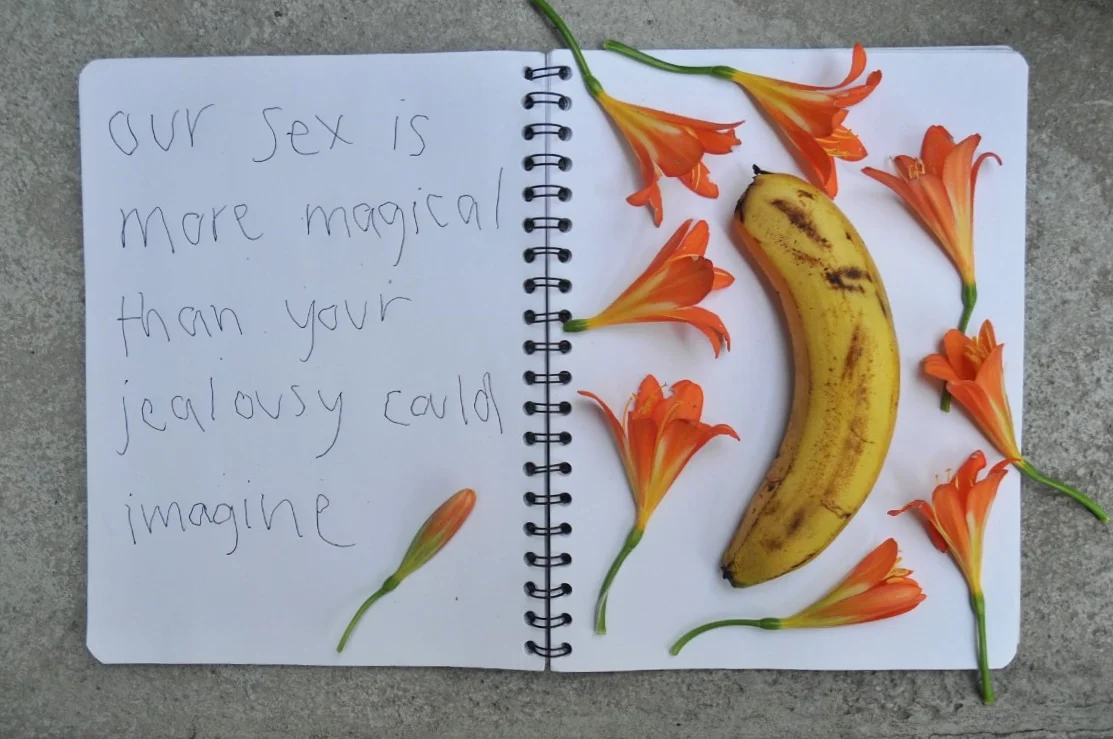 our sex is
more magical
than your
jealousy could
imagine